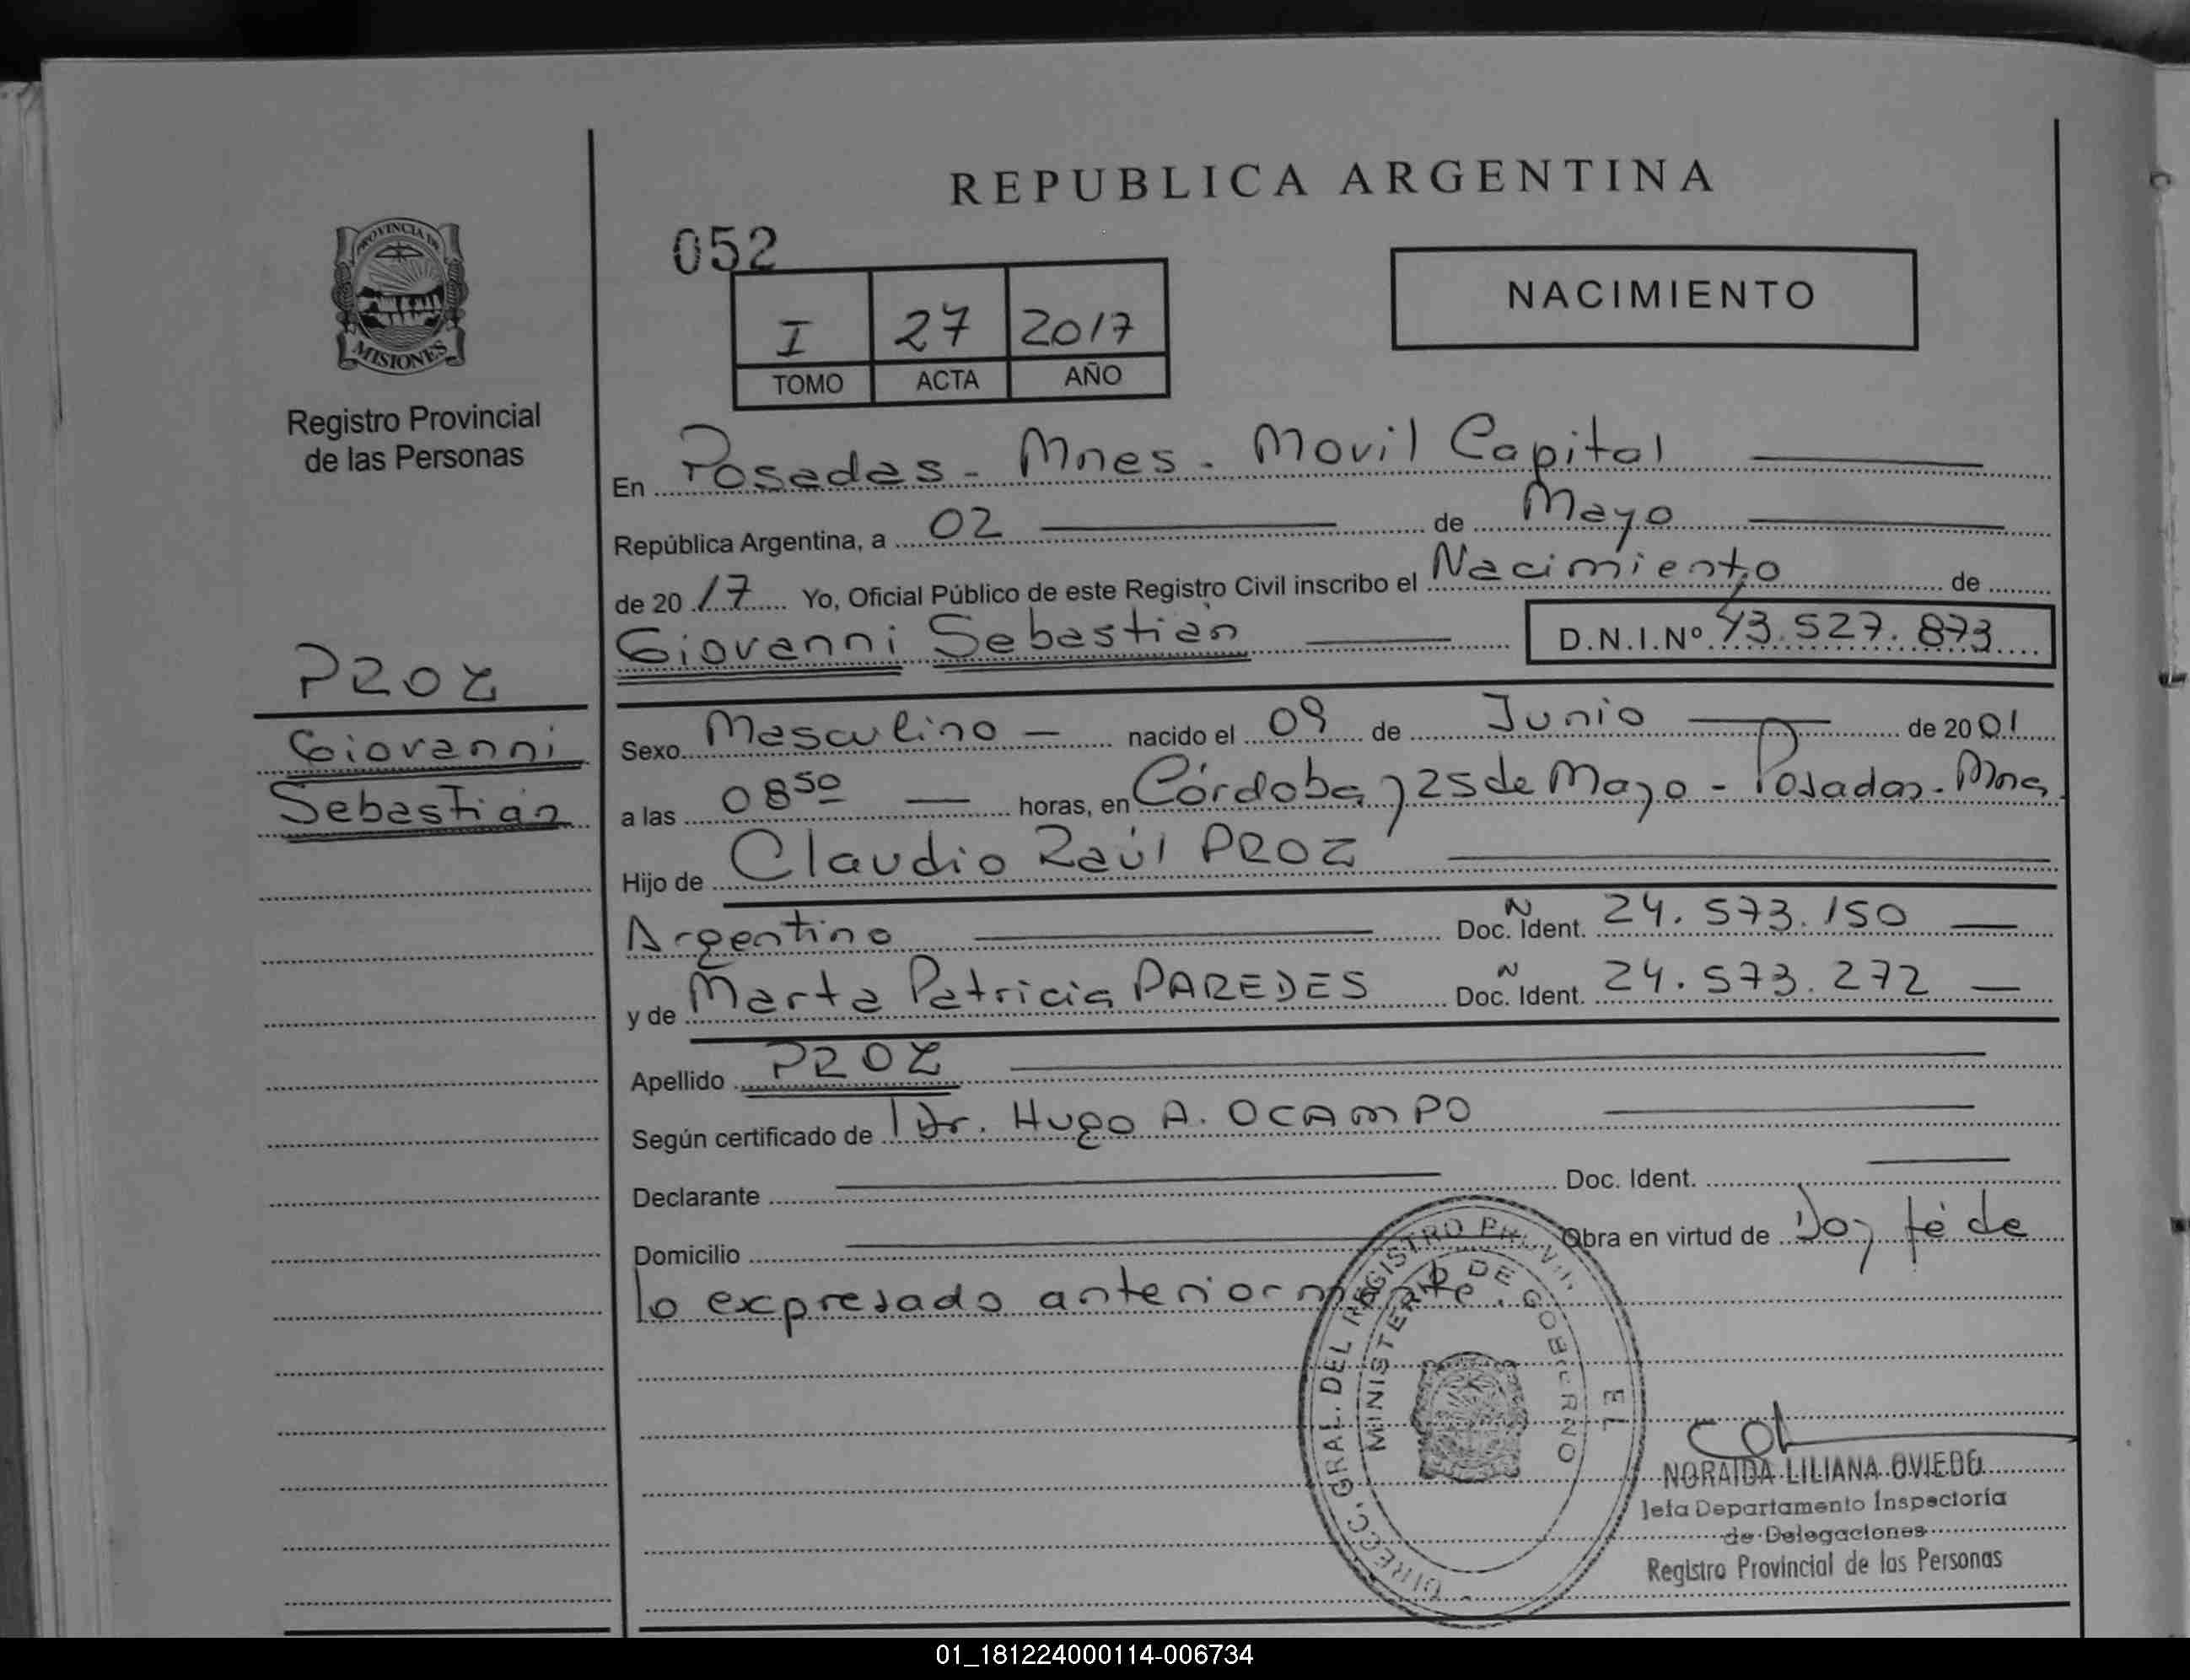 REPUBLICA ARGENTINA
052
NACIMIENTO
I 27 2017
TOMO ACTA AÑO
PROVINCIA DE
MISIONES
Registro Provincial
de las Personas
En Posadas - Mnes - Movil Capital
República Argentina, a 02 de Mayo
de 2017 Yo, Oficial Público de este Registro Civil inscribo el Nacimiento de
Giovanni Sebastián D.N.I.Nº 43.527.873
PROZ
Giovanni
Sebastián
Sexo Masculino — nacido el 09 de Junio de 2001
a las 08 50 — horas, en Córdoba y 25 de Mayo - Posadas - Mnes
Hijo de Claudio Raúl PROZ
Argentino Doc. Ident. Ñ 24.573.150 —
y de Marta Patricia PAREDES Doc. Ident. Ñ 24.573.272 —
Apellido PROZ
Según certificado de Dr. Hugo A. OCAMPO
Declarante Doc. Ident.
Domicilio Obra en virtud de Doy fé de
lo expresado anteriormente.
DIRECC. GRAL. DEL REGISTRO
MINISTERIO DE GOBIERNO
NORAIDA LILIANA OVIEDO
Jefa Departamento Inspectoría
de Delegaciones
Registro Provincial de las Personas
01_181224000114-006734